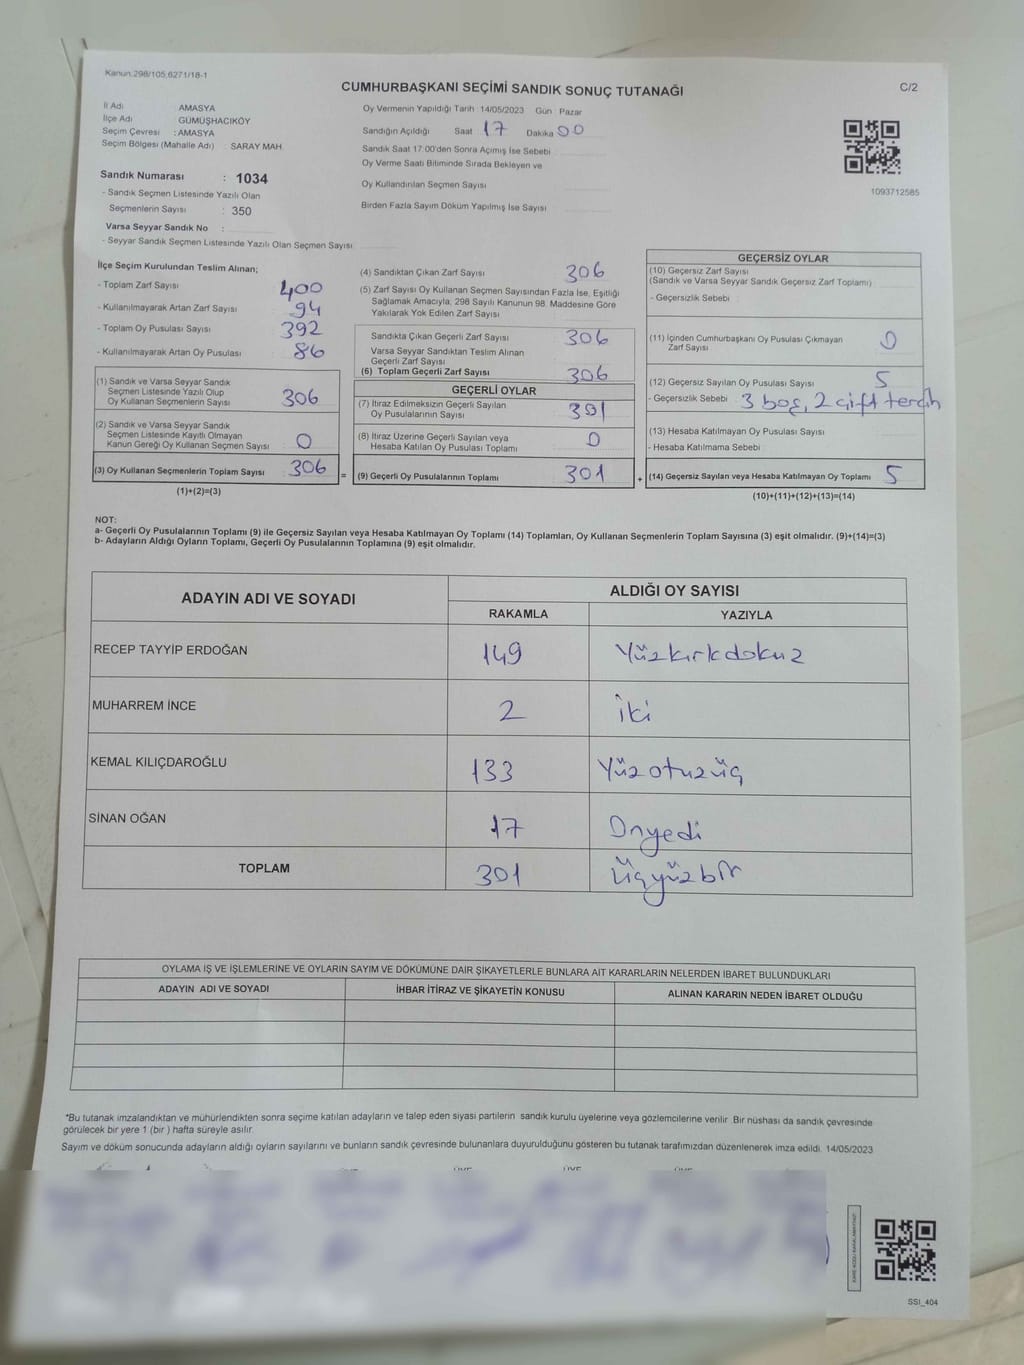 Kanun:298/105,6271/18-1
CUMHURBAŞKANI SEÇİMİ SANDIK SONUÇ TUTANAĞI
C/2
İl Adı : AMASYA
İlçe Adı : GÜMÜŞHACIKÖY
Seçim Çevresi : AMASYA
Seçim Bölgesi (Mahalle Adı) : SARAY MAH.
Sandık Numarası : 1034
- Sandık Seçmen Listesinde Yazılı Olan
Seçmenlerin Sayısı : 350
Varsa Seyyar Sandık No :
- Seyyar Sandık Seçmen Listesinde Yazılı Olan Seçmen Sayısı
Oy Vermenin Yapıldığı Tarih : 14/05/2023 Gün : Pazar
Sandığın Açıldığı Saat 17 Dakika 00
Sandık Saat 17:00'den Sonra Açımış İse Sebebi
Oy Verme Saati Bitiminde Sırada Bekleyen ve
Oy Kullandırılan Seçmen Sayısı
Birden Fazla Sayım Döküm Yapılmış İse Sayısı
1093712585
İlçe Seçim Kurulundan Teslim Alınan;
- Toplam Zarf Sayısı 400
- Kullanılmayarak Artan Zarf Sayısı 94
- Toplam Oy Pusulası Sayısı 392
- Kullanılmayarak Artan Oy Pusulası 86
(1) Sandık ve Varsa Seyyar Sandık
Seçmen Listesinde Yazılı Olup
Oy Kullanan Seçmenlerin Sayısı 306
(2) Sandık ve Varsa Seyyar Sandık
Seçmen Listesinde Kayıtlı Olmayan
Kanun Gereği Oy Kullanan Seçmen Sayısı 0
(3) Oy Kullanan Seçmenlerin Toplam Sayısı 306 =
(1)+(2)=(3)
(4) Sandıktan Çıkan Zarf Sayısı 306
(5) Zarf Sayısı Oy Kullanan Seçmen Sayısından Fazla İse, Eşitliği
Sağlamak Amacıyla, 298 Sayılı Kanunun 98. Maddesine Göre
Yakılarak Yok Edilen Zarf Sayısı
Sandıkta Çıkan Geçerli Zarf Sayısı 306
Varsa Seyyar Sandıktan Teslim Alınan
Geçerli Zarf Sayısı
(6) Toplam Geçerli Zarf Sayısı 306
GEÇERLİ OYLAR
(7) İtiraz Edilmeksizin Geçerli Sayılan
Oy Pusulalarının Sayısı 301
(8) İtiraz Üzerine Geçerli Sayılan veya
Hesaba Katılan Oy Pusulası Toplamı 0
(9) Geçerli Oy Pusulalarının Toplamı 301 +
GEÇERSİZ OYLAR
(10) Geçersiz Zarf Sayısı
(Sandık ve Varsa Seyyar Sandık Geçersiz Zarf Toplamı)
- Geçersizlik Sebebi :
(11) İçinden Cumhurbaşkanı Oy Pusulası Çıkmayan
Zarf Sayısı 0
(12) Geçersiz Sayılan Oy Pusulası Sayısı 5
- Geçersizlik Sebebi : 3 boş, 2 çift tercih
(13) Hesaba Katılmayan Oy Pusulası Sayısı
- Hesaba Katılmama Sebebi :
(14) Geçersiz Sayılan veya Hesaba Katılmayan Oy Toplamı 5
(10)+(11)+(12)+(13)=(14)
NOT:
a- Geçerli Oy Pusulalarının Toplamı (9) ile Geçersiz Sayılan veya Hesaba Katılmayan Oy Toplamı (14) Toplamları, Oy Kullanan Seçmenlerin Toplam Sayısına (3) eşit olmalıdır. (9)+(14)=(3)
b- Adayların Aldığı Oyların Toplamı, Geçerli Oy Pusulalarının Toplamına (9) eşit olmalıdır.
ADAYIN ADI VE SOYADI
ALDIĞI OY SAYISI
RAKAMLA YAZIYLA
RECEP TAYYİP ERDOĞAN 149 Yüzkırkdokuz
MUHARREM İNCE 2 iki
KEMAL KILIÇDAROĞLU 133 Yüzotuzüç
SİNAN OĞAN 17 Onyedi
TOPLAM 301 Üçyüzbir
OYLAMA İŞ VE İŞLEMLERİNE VE OYLARIN SAYIM VE DÖKÜMÜNE DAİR ŞİKAYETLERLE BUNLARA AİT KARARLARIN NELERDEN İBARET BULUNDUKLARI
ADAYIN ADI VE SOYADI İHBAR İTİRAZ VE ŞİKAYETİN KONUSU ALINAN KARARIN NEDEN İBARET OLDUĞU
*Bu tutanak imzalandıktan ve mühürlendikten sonra seçime katılan adayların ve talep eden siyasi partilerin sandık kurulu üyelerine veya gözlemcilerine verilir. Bir nüshası da sandık çevresinde
görülecek bir yere 1 (bir ) hafta süreyle asılır.
Sayım ve döküm sonucunda adayların aldığı oyların sayılarını ve bunların sandık çevresinde bulunanlara duyurulduğunu gösteren bu tutanak tarafımızdan düzenlenerek imza edildi. 14/05/2023
SSI_404